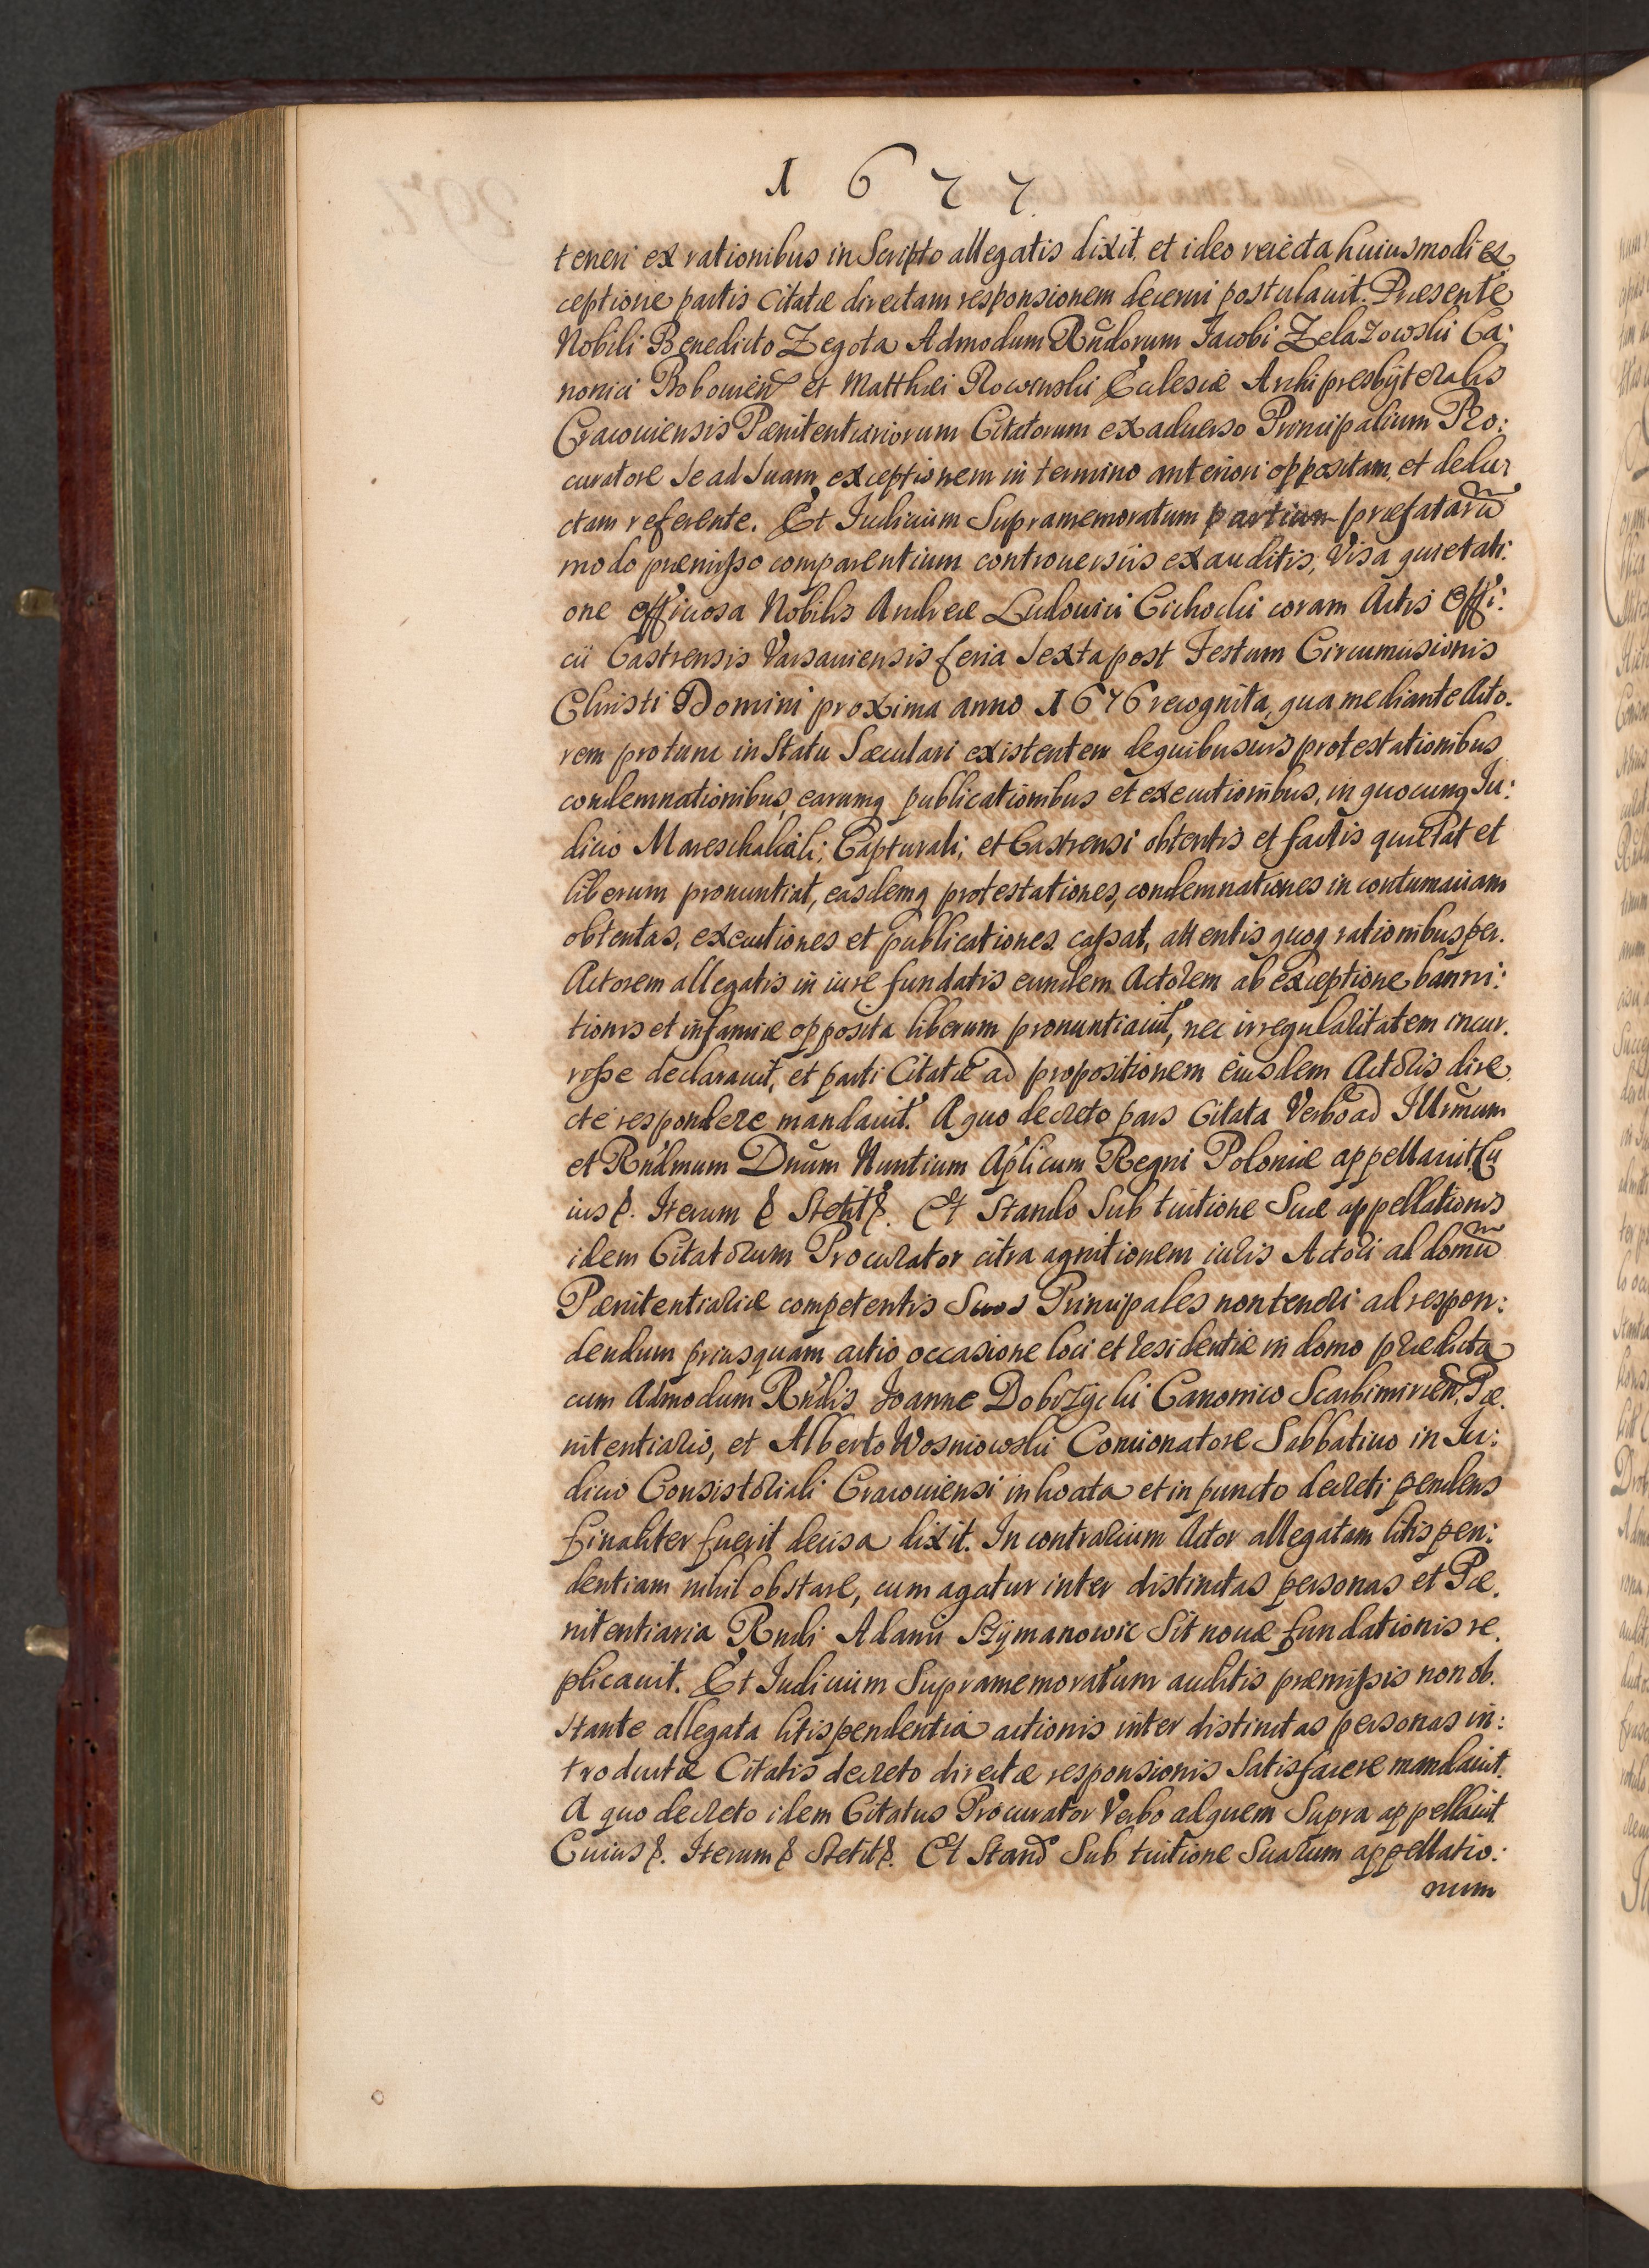 1677
teneri ex rationibus in Scripto allegatis dixit, et ideo reiecta huiusmodi ex
ceptione partis Citatæ directam responsionem decerni postulauit. Præsente
Nobili Benedicto Zegota Admodum Rndorum Jacobi Zelazowski Ca:
nonici Bobouien et Matthæi Rowinski Ecclesiæ Archipresbÿteralis
Cracouiensis Pænitentiariorum Citatorum ex aduerso Principalium Pro:
curatore se ad suam exceptionem in termino anteriori oppositam, et dedu
ctam referente. Et Iudicium Supramemoratum partium præfatarū
modo præmisso comparentium controuersiis exauditis, Visa quietati:
one officiosa Nobilis Andreæ Ludouici Cichocki coram Actis Offi:
cii Castrensis Varsauiensis feria sexta post Festum Circumcisionis
Christi Domini proxima anno 1676 recognita, qua mediante Acto.
rem pro tunc in Statu Sæculari existentem de quibusuis protestationibus
condemnationibus, earumq publicationibus et executionibus, in quocunq Iu:
dicio Mareschalcali, Capturali, et Castrensi obtentis et factis quietat et
liberum pronuntiat, easdemq protestationes, condemnationes in contumaciam
obtentas, executiones et publicationes cassat, attentis quoq rationibus per.
Actorem allegatis in iure fundatis eundem Actorem ab exceptione banni:
tionis et infamiæ opposita liberum pronuntiauit, nec irregularitatem incur.
risse declarauit, et parti Citatæ ad propositionem eiusdem Actoris dire
cte respondere mandauit. A quo decreto pars Citata Verbo ad Illrmum
et Rndmum Dnum Nuntium Aplicum Regni Poloniæ appellauit. Cu
ius &. Iterum & Stetit &. Et Stando Sub tuitione Suæ appellationis
idem Citatorum Procurator citra agnitionem iuris Actori ad domū
Pænitentiariæ competentis Suos Principales non teneri ad respon:
dendum priusquam actio occasione loci et residentiæ in domo prædicta
cum Admodum Rndis Joanne Dobrzÿcki Canonico Scarbimirien, Pæ.
nitentiario, et Alberto Wosniowski Concionatore Sabbatino in Iu:
dicio Consistoriali Cracouiensi inchoata et in puncto decreti pendens
finaliter fuerit decisa dixit. In contrarium Actor allegatam litispen:
dentiam nihil obstare, cum agatur inter distinctas personas et Pæ.
nitentiaria Rndi Adami Szÿmanowic sit nouæ fundationis re.
plicauit. Et Iudicium Supramemoratum auditis præmissis non ob.
stante allegata litispendentia actionis inter distinctas personas in:
troductæ Citatis decreto directæ responsionis Satisfacere mandauit.
A quo decreto idem Citatus Procurator Verbo ad quem Supra appellauit.
Cuius &. Iterum & Stetit &. Et Stand Sub tuitione Suarum appellatio:
num